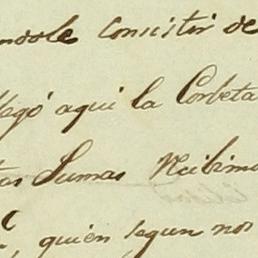 ndole consistir de
legó aqui la Corbeta
tas Sumas Recibimo
, quien segun nos